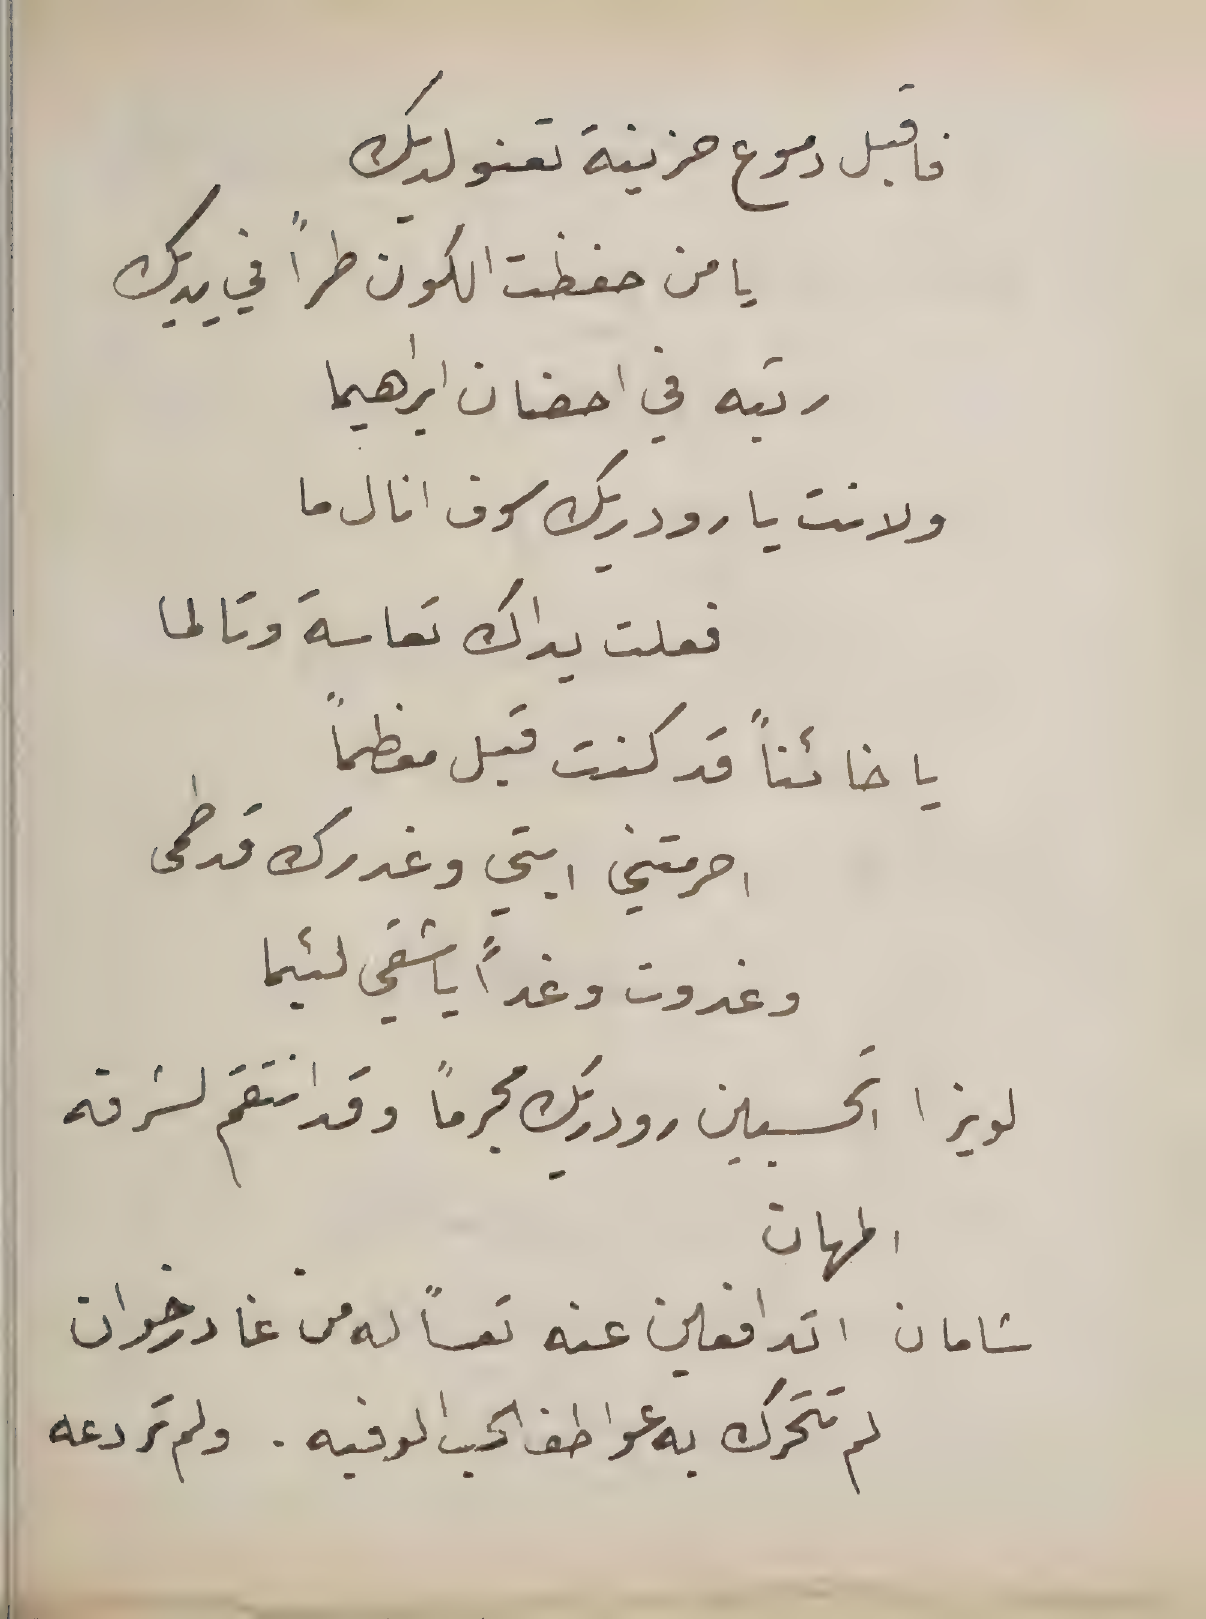 فاقبل دموع حزينة تعنو لديك
يا من حفظت الكون طراً في يديك
رتبه في احضان ابراهيما
ولانت يا رودريك سوف انال ما
فعلت يداك تعاسة وتالما
يا خائناً قد كنت قبل معظماً
احرمتني ابتي وغدرك قد طمى
وغدوت وغداً يا شقي لئيما
لويزا اتحسبين رودريك مجرماً وقد انتقم لشرفه
المهان
شامان اتدافعين عنه تعساً له من غادر خوان
لم تتحرك به عواطف الحب الوفيه . ولم تردعه